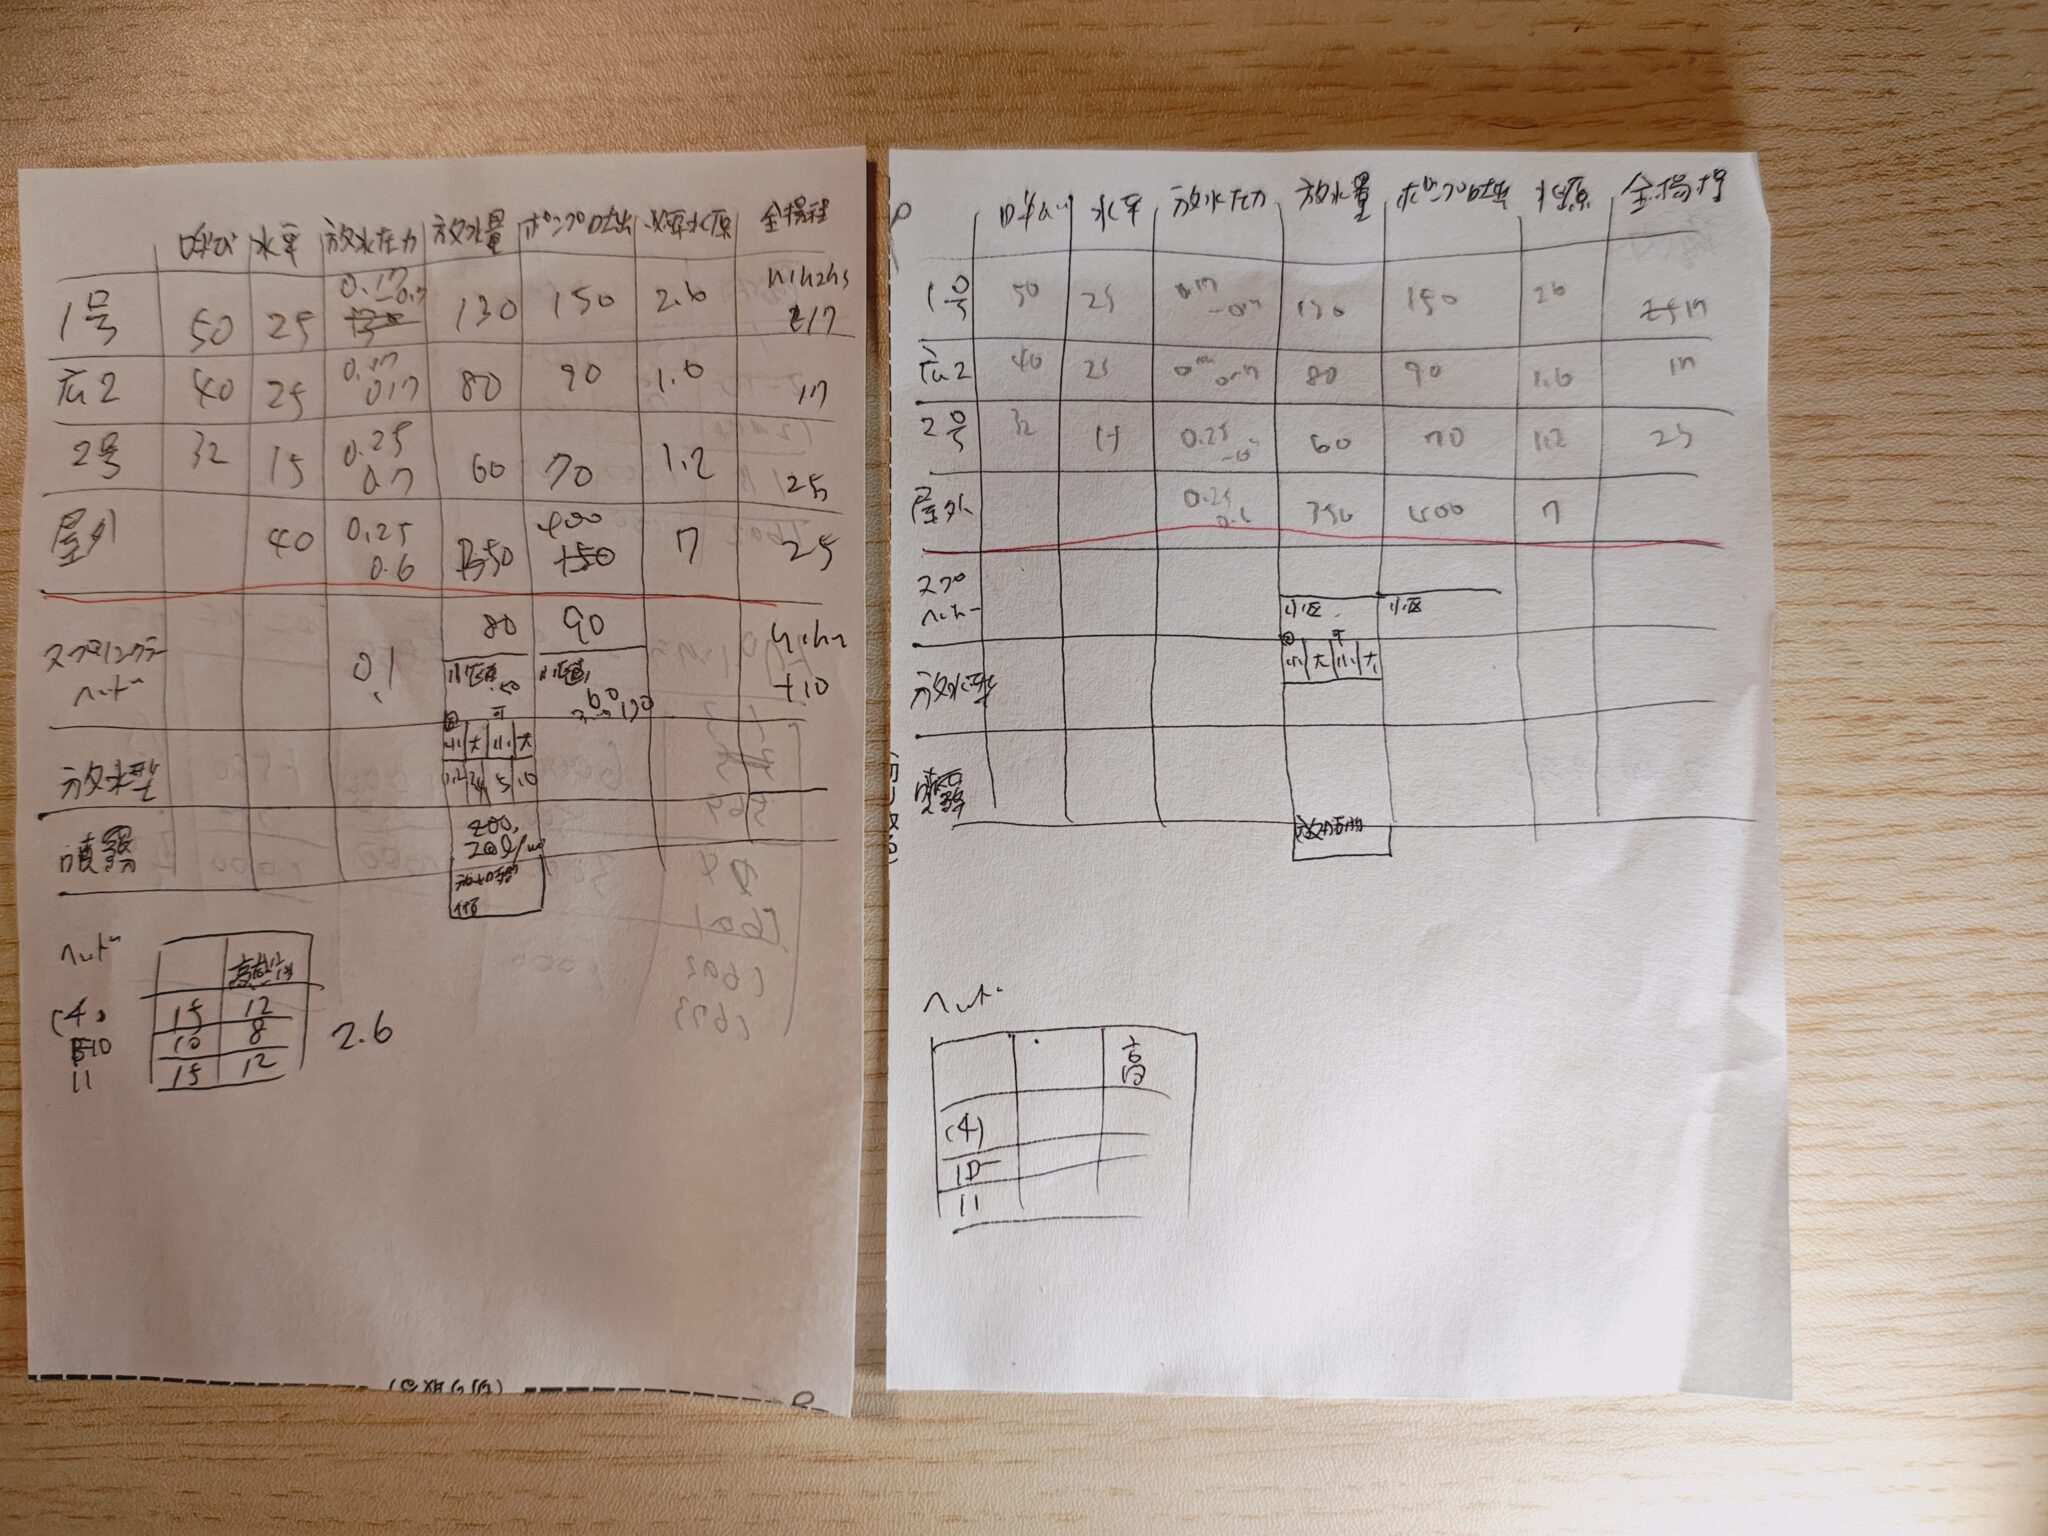 呼び 水平 放水圧力 放水量 ポンプ吐出 必要水源 全揚程
1号 50 25 0.17 -0.7 130 150 2.6 h1h2h3 +17
広2 40 25 0.17 0.7 80 90 1.6 17
2号 32 15 0.25 0.7 60 70 1.2 25
屋外 40 0.25 0.6 350 400 7 25
スプリンクラー ヘッド 0.1 80 90 +10
小区 50 60 130
小 大 小 大
放水型 5 10
噴霧 200
20ℓ/
ヘッド
(4) 15 12
10 10 8
11 15 12
2.6
呼び 水平 放水圧力 放水量 ポンプ吐出 水源 全揚程
1号 50 25 0.17 -0.7 130 150 2.6 17
広2 40 25 0.17 0.7 80 90 1.6 17
2号 32 15 0.25 60 70 1.2 25
屋外 0.25 0.6 350 400 7
スプ ヘッド 小区 小区
小 大 小 大
放水型
噴霧
ヘッド
高
(4)
10
11